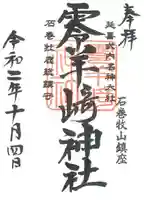 奉拝
延喜式内名神大社
石巻牧山鎮座
零羊崎神社
令和二年十月四日